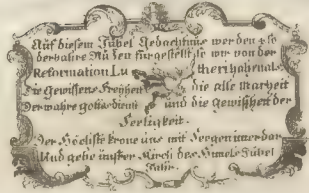 Auf diesem Jubel Gedächtnus werden 4 so
derbahre Nutzen fürgestellt, so wir von der
Reformation Lutheri haben als
Die Gewissens Freyheit die alte Warheit
Der wahre gottsdienst und die gewisheit der
Seeligkeit.
Der Höchste krone uns mit Seegen immerdar
Und gebe unsrer Kirch des Himels Jubel
Jahr.